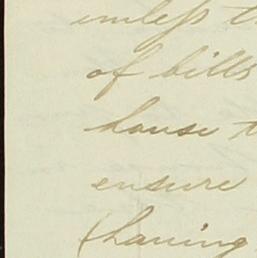 unless th
of bills
house t
ensure
(having